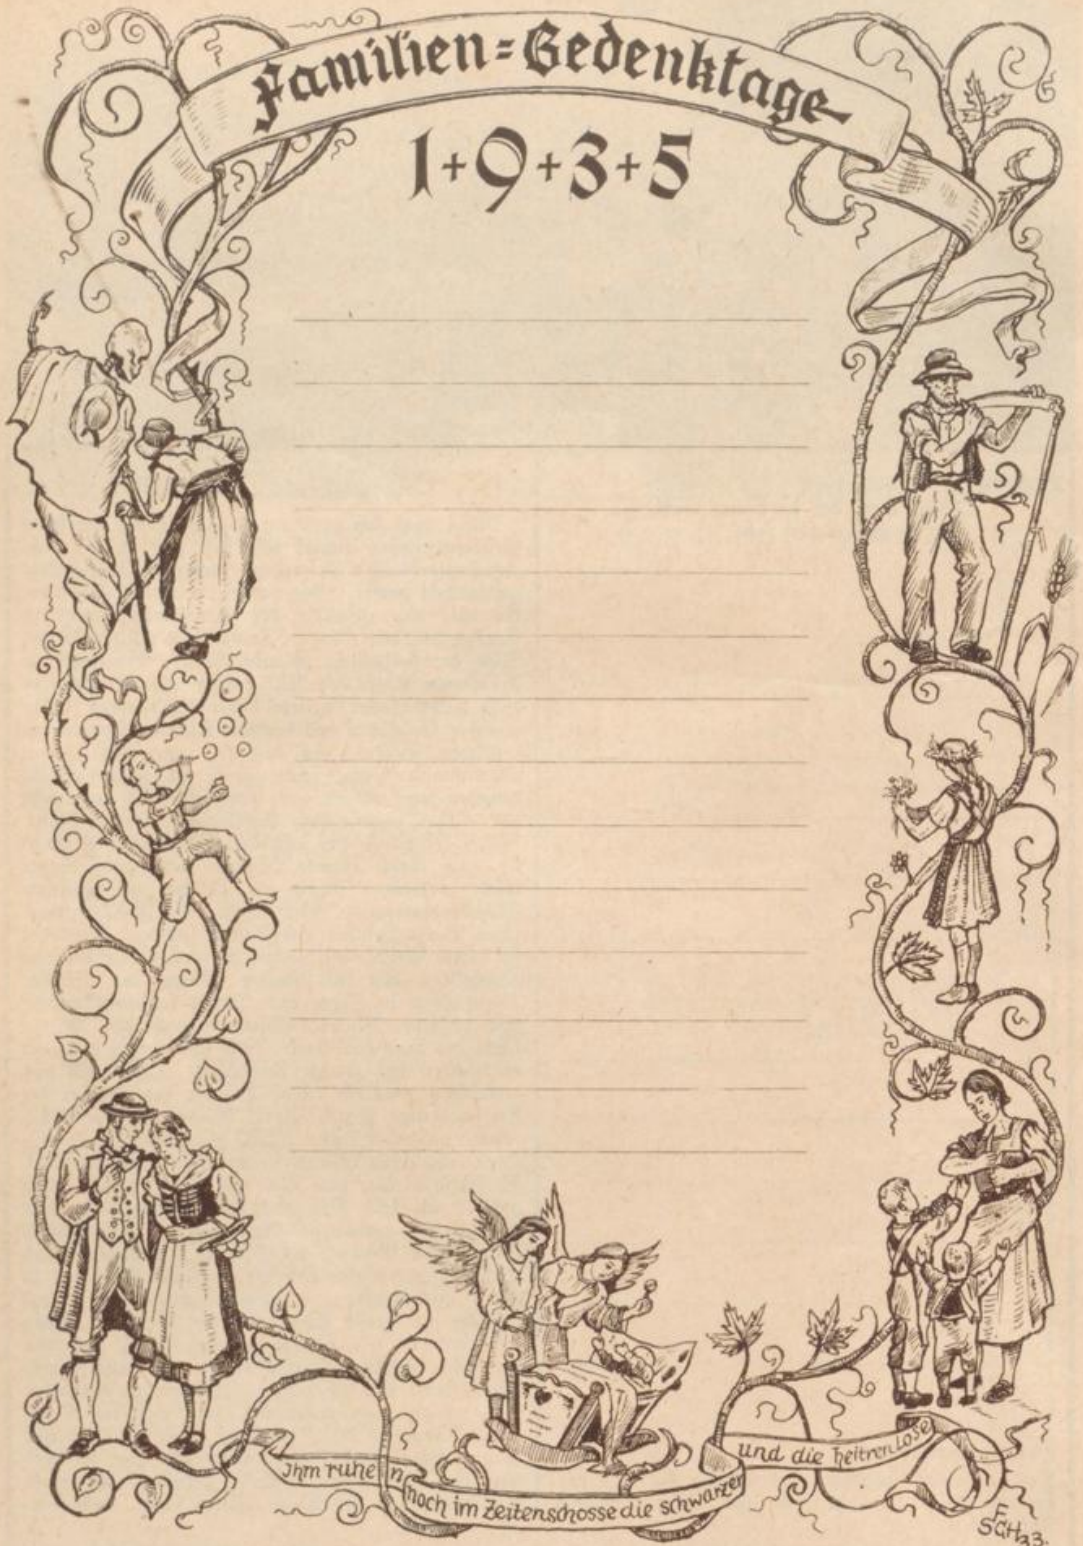 Familien=Gedenktage
1+9+3+5
Ihm ruhen noch im Zeitenschosse die schwarzen und die heitren Lose
F
SCH33.